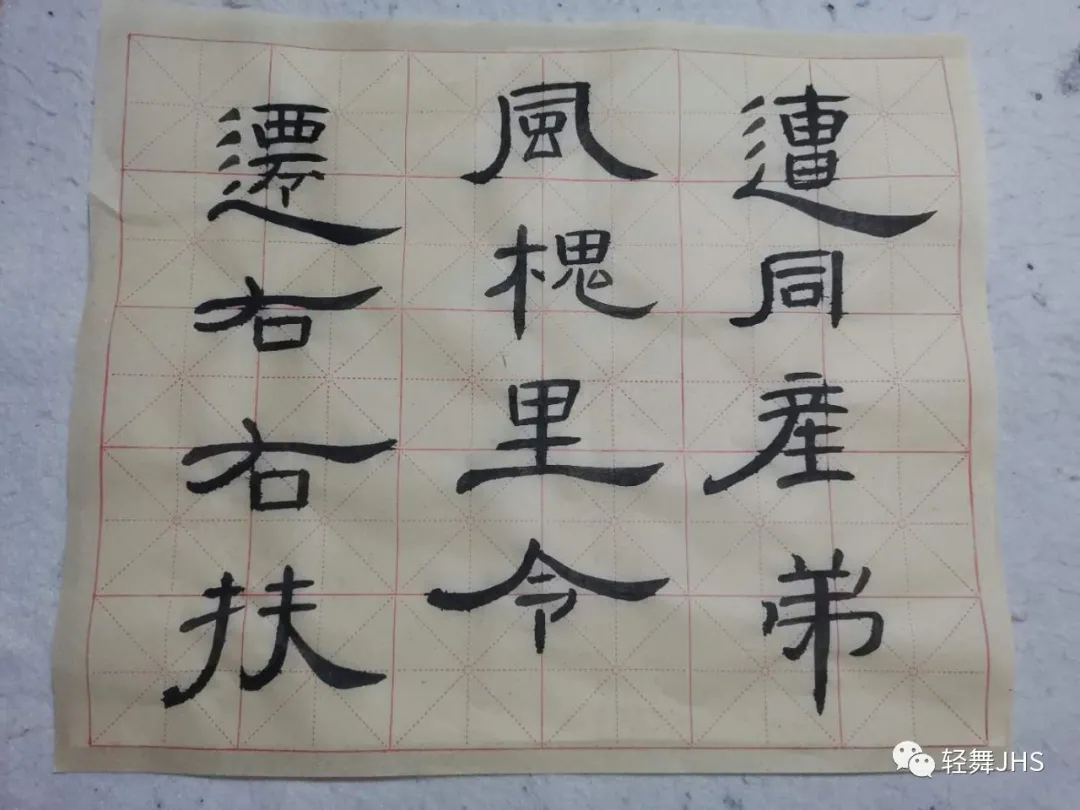 遭同産弟
風槐里令
遷右右扶
轻舞JHS